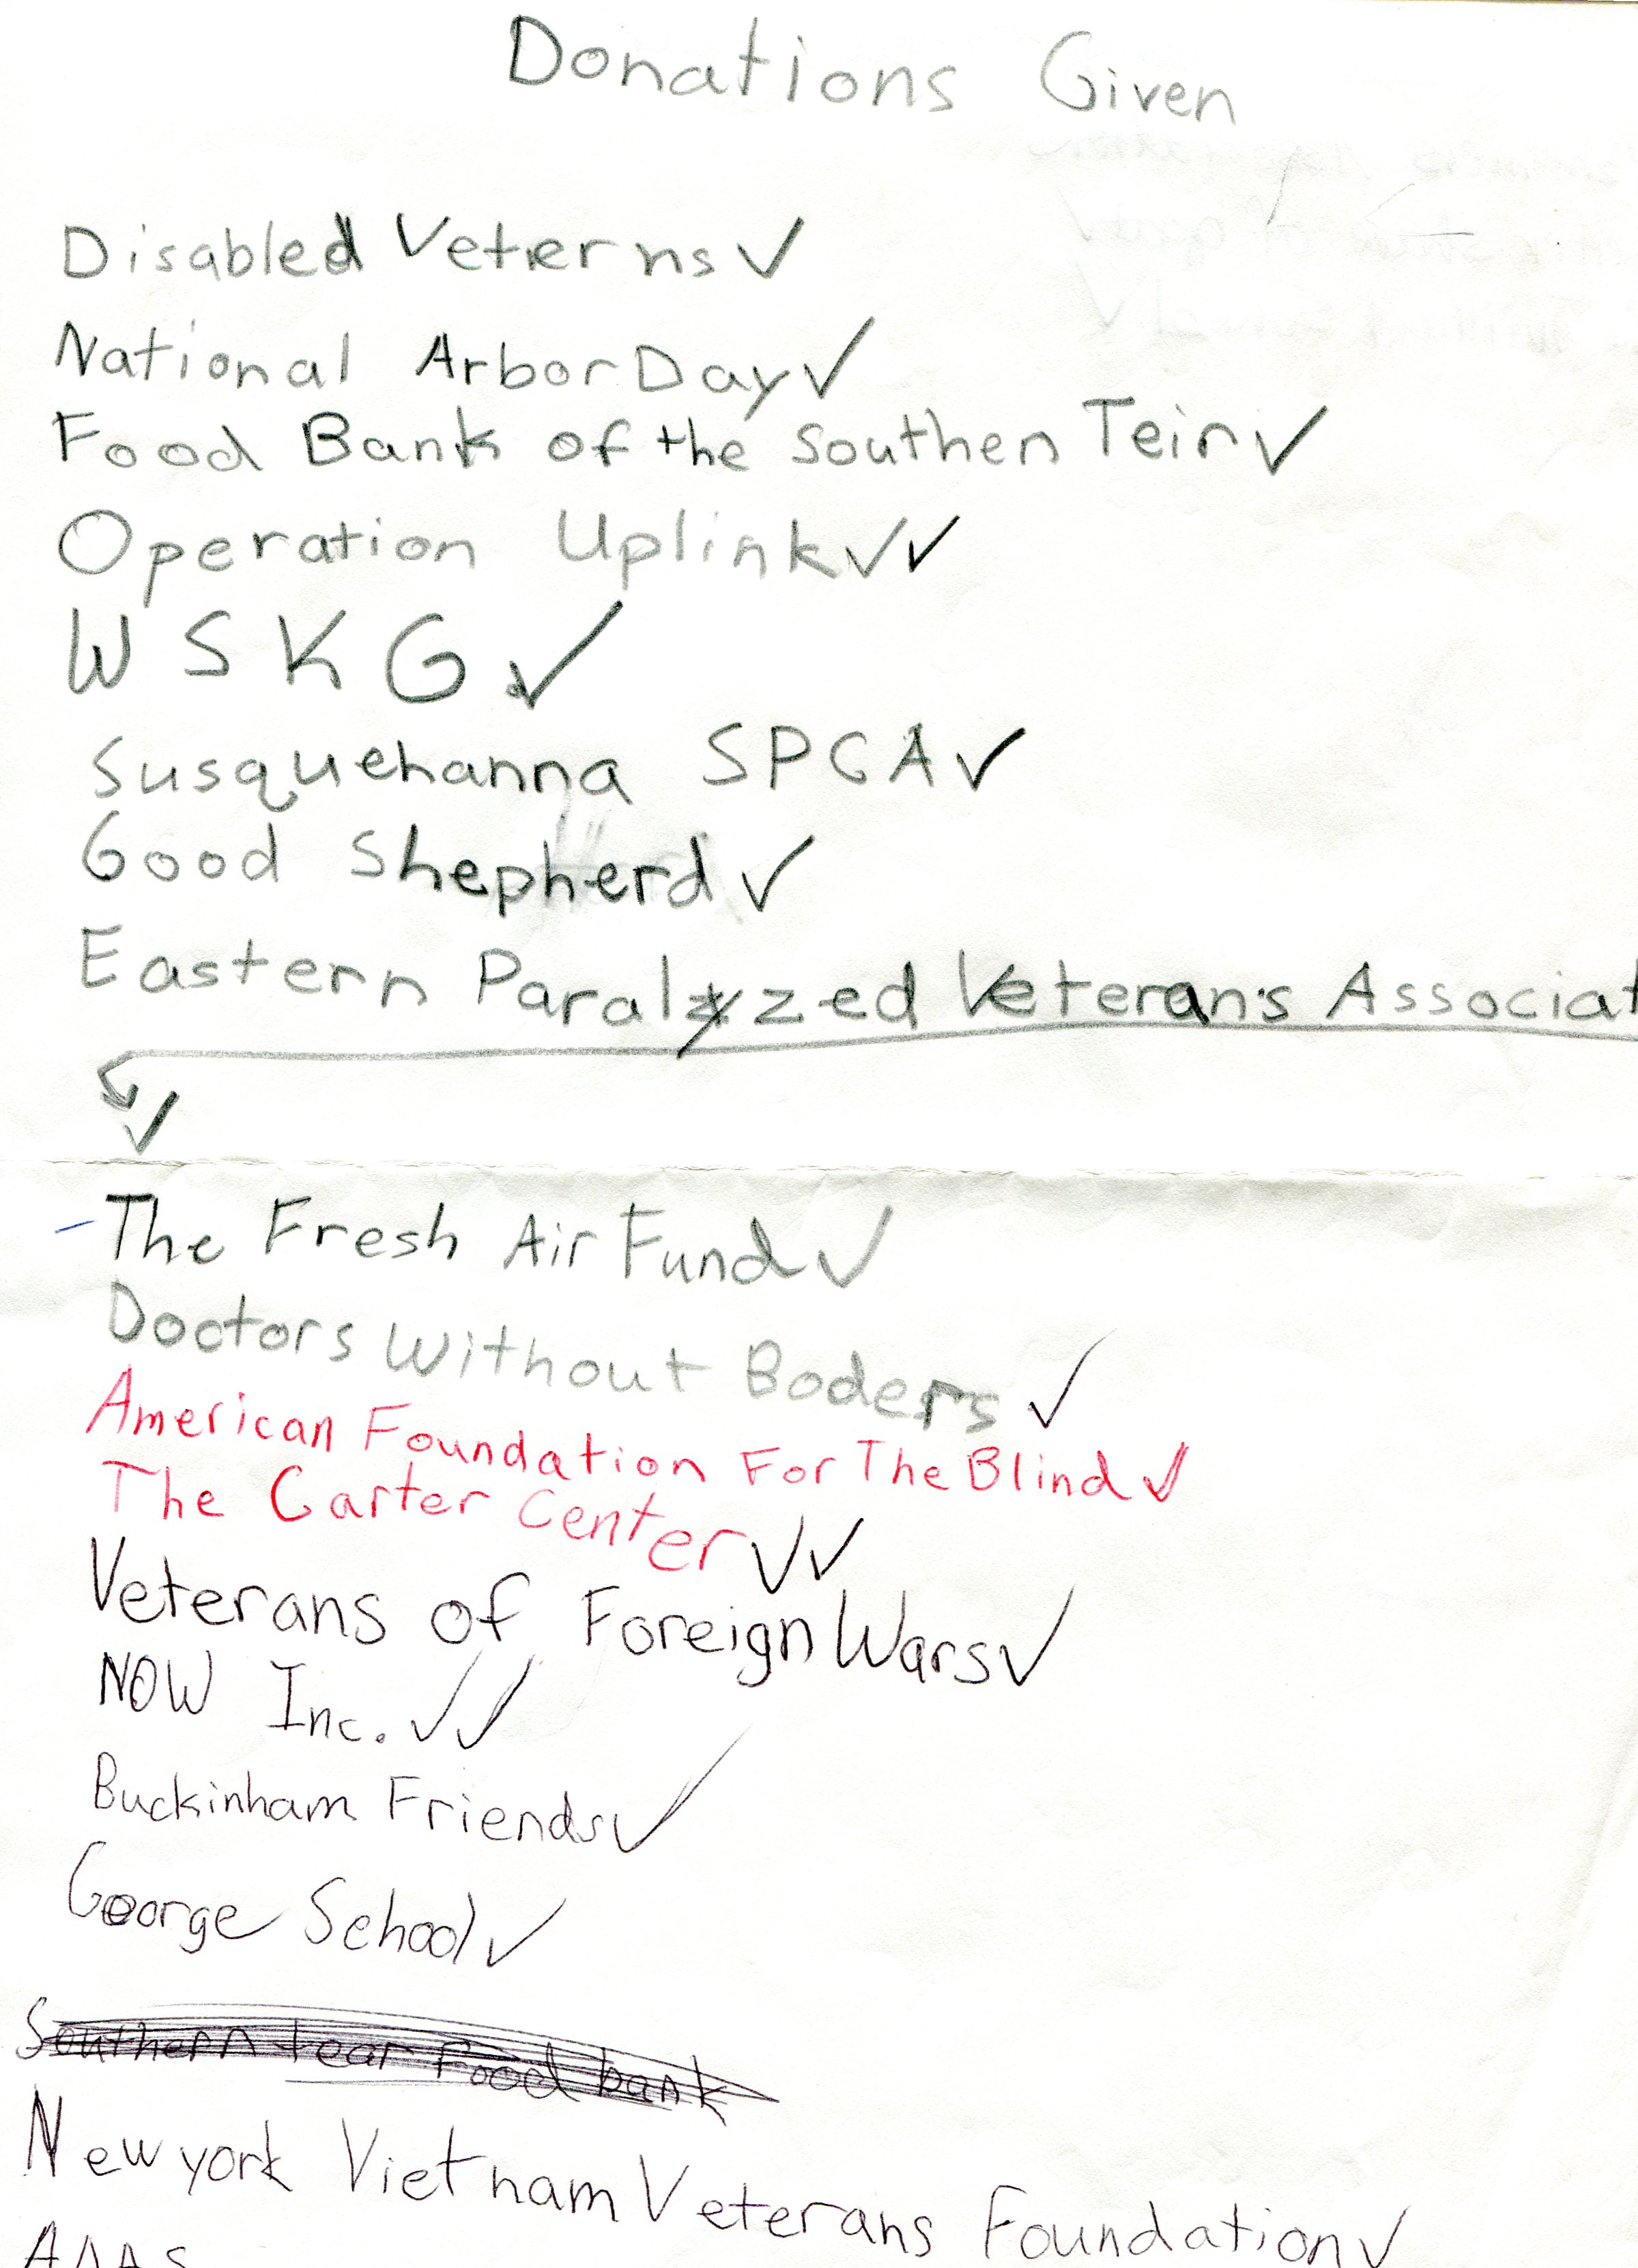 Donations Given
Disabled Veterns ✓
National Arbor Day ✓
Food Bank of the Southen Teir ✓
Operation Uplink ✓✓
W S K G ✓
Susquehanna SPCA ✓
Good Shepherd ✓
Eastern Paralyzed Veterans Associat
✓
The Fresh Air Fund ✓
Doctors Without Boders ✓
American Foundation For The Blind ✓
The Carter Center ✓✓
Veterans of Foreign Wars ✓
NOW Inc. ✓✓
Buckinham Friends ✓
George School ✓
Southern tear Food bank
New york Vietnam Veterans Foundation ✓